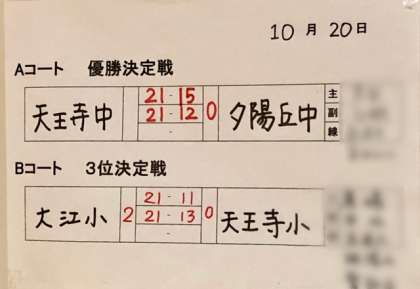 10月20日
Aコート 優勝決定戦
天王寺中 21-15 0 夕陽丘中 主
21-12 副
- 線
Bコート 3位決定戦
大江小 2 21-11 0 天王寺小
21-13
-